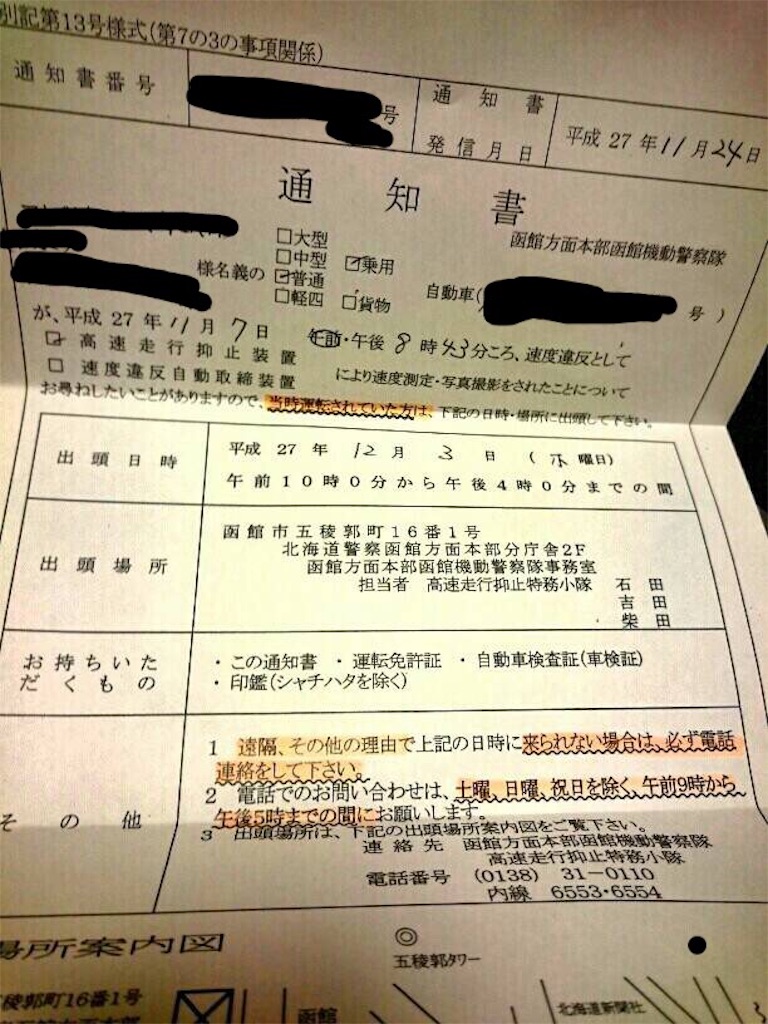 別記第13号様式(第7の3の事項関係)
通知書番号
号
通知書
発信月日
平成 27 年 11 月 24 日
通知書
函館方面本部函館機動警察隊
様名義の
□大型
□中型
☑普通
□軽四
☑乗用
□貨物
自動車(
号 )
が、平成 27 年 11 月 7 日 午前・午後 8 時 43 分ころ、速度違反として
☑ 高速走行抑止装置
□ 速度違反自動取締装置
により速度測定・写真撮影をされたことについて
お尋ねしたいことがありますので、当時運転されていた方は、下記の日時・場所に出頭して下さい。
出頭日時
平成 27 年 12 月 3 日 ( 木 曜日)
午前10時0分から午後4時0分までの間
出頭場所
函館市五稜郭町16番1号
北海道警察函館方面本部分庁舎2F
函館方面本部函館機動警察隊事務室
担当者 高速走行抑止特務小隊 石田
吉田
柴田
お持ちいた
だくもの
・この通知書 ・運転免許証 ・自動車検査証(車検証)
・印鑑(シャチハタを除く)
その他
1 遠隔、その他の理由で上記の日時に来られない場合は、必ず電話
連絡をして下さい。
2 電話でのお問い合わせは、土曜、日曜、祝日を除く、午前9時から
午後5時までの間にお願いします。
3 出頭場所は、下記の出頭場所案内図をご覧下さい。
連絡先 函館方面本部函館機動警察隊
高速走行抑止特務小隊
電話番号 (0138) 31-0110
内線 6553・6554
場所案内図
五稜郭タワー
稜郭町16番1号
函館
北海道新聞社